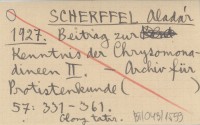 SCHERFFEL Aladár
1927. Beitrag zur
Kenntnis der Chrysomona-
dineen II. - Archiv für
Protistenkunde (
57: 331-361.